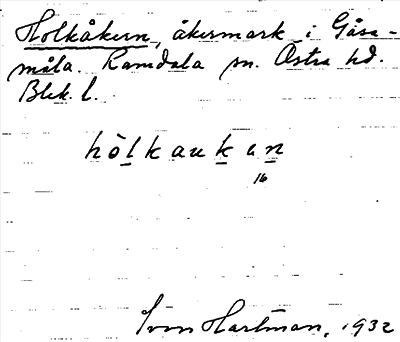 Holkåkern, åkermark i Gåsa-
måla. Ramdala sn. Östra hd.
Blek. l.
hòlkaukan
16
Sven Hartman, 1932